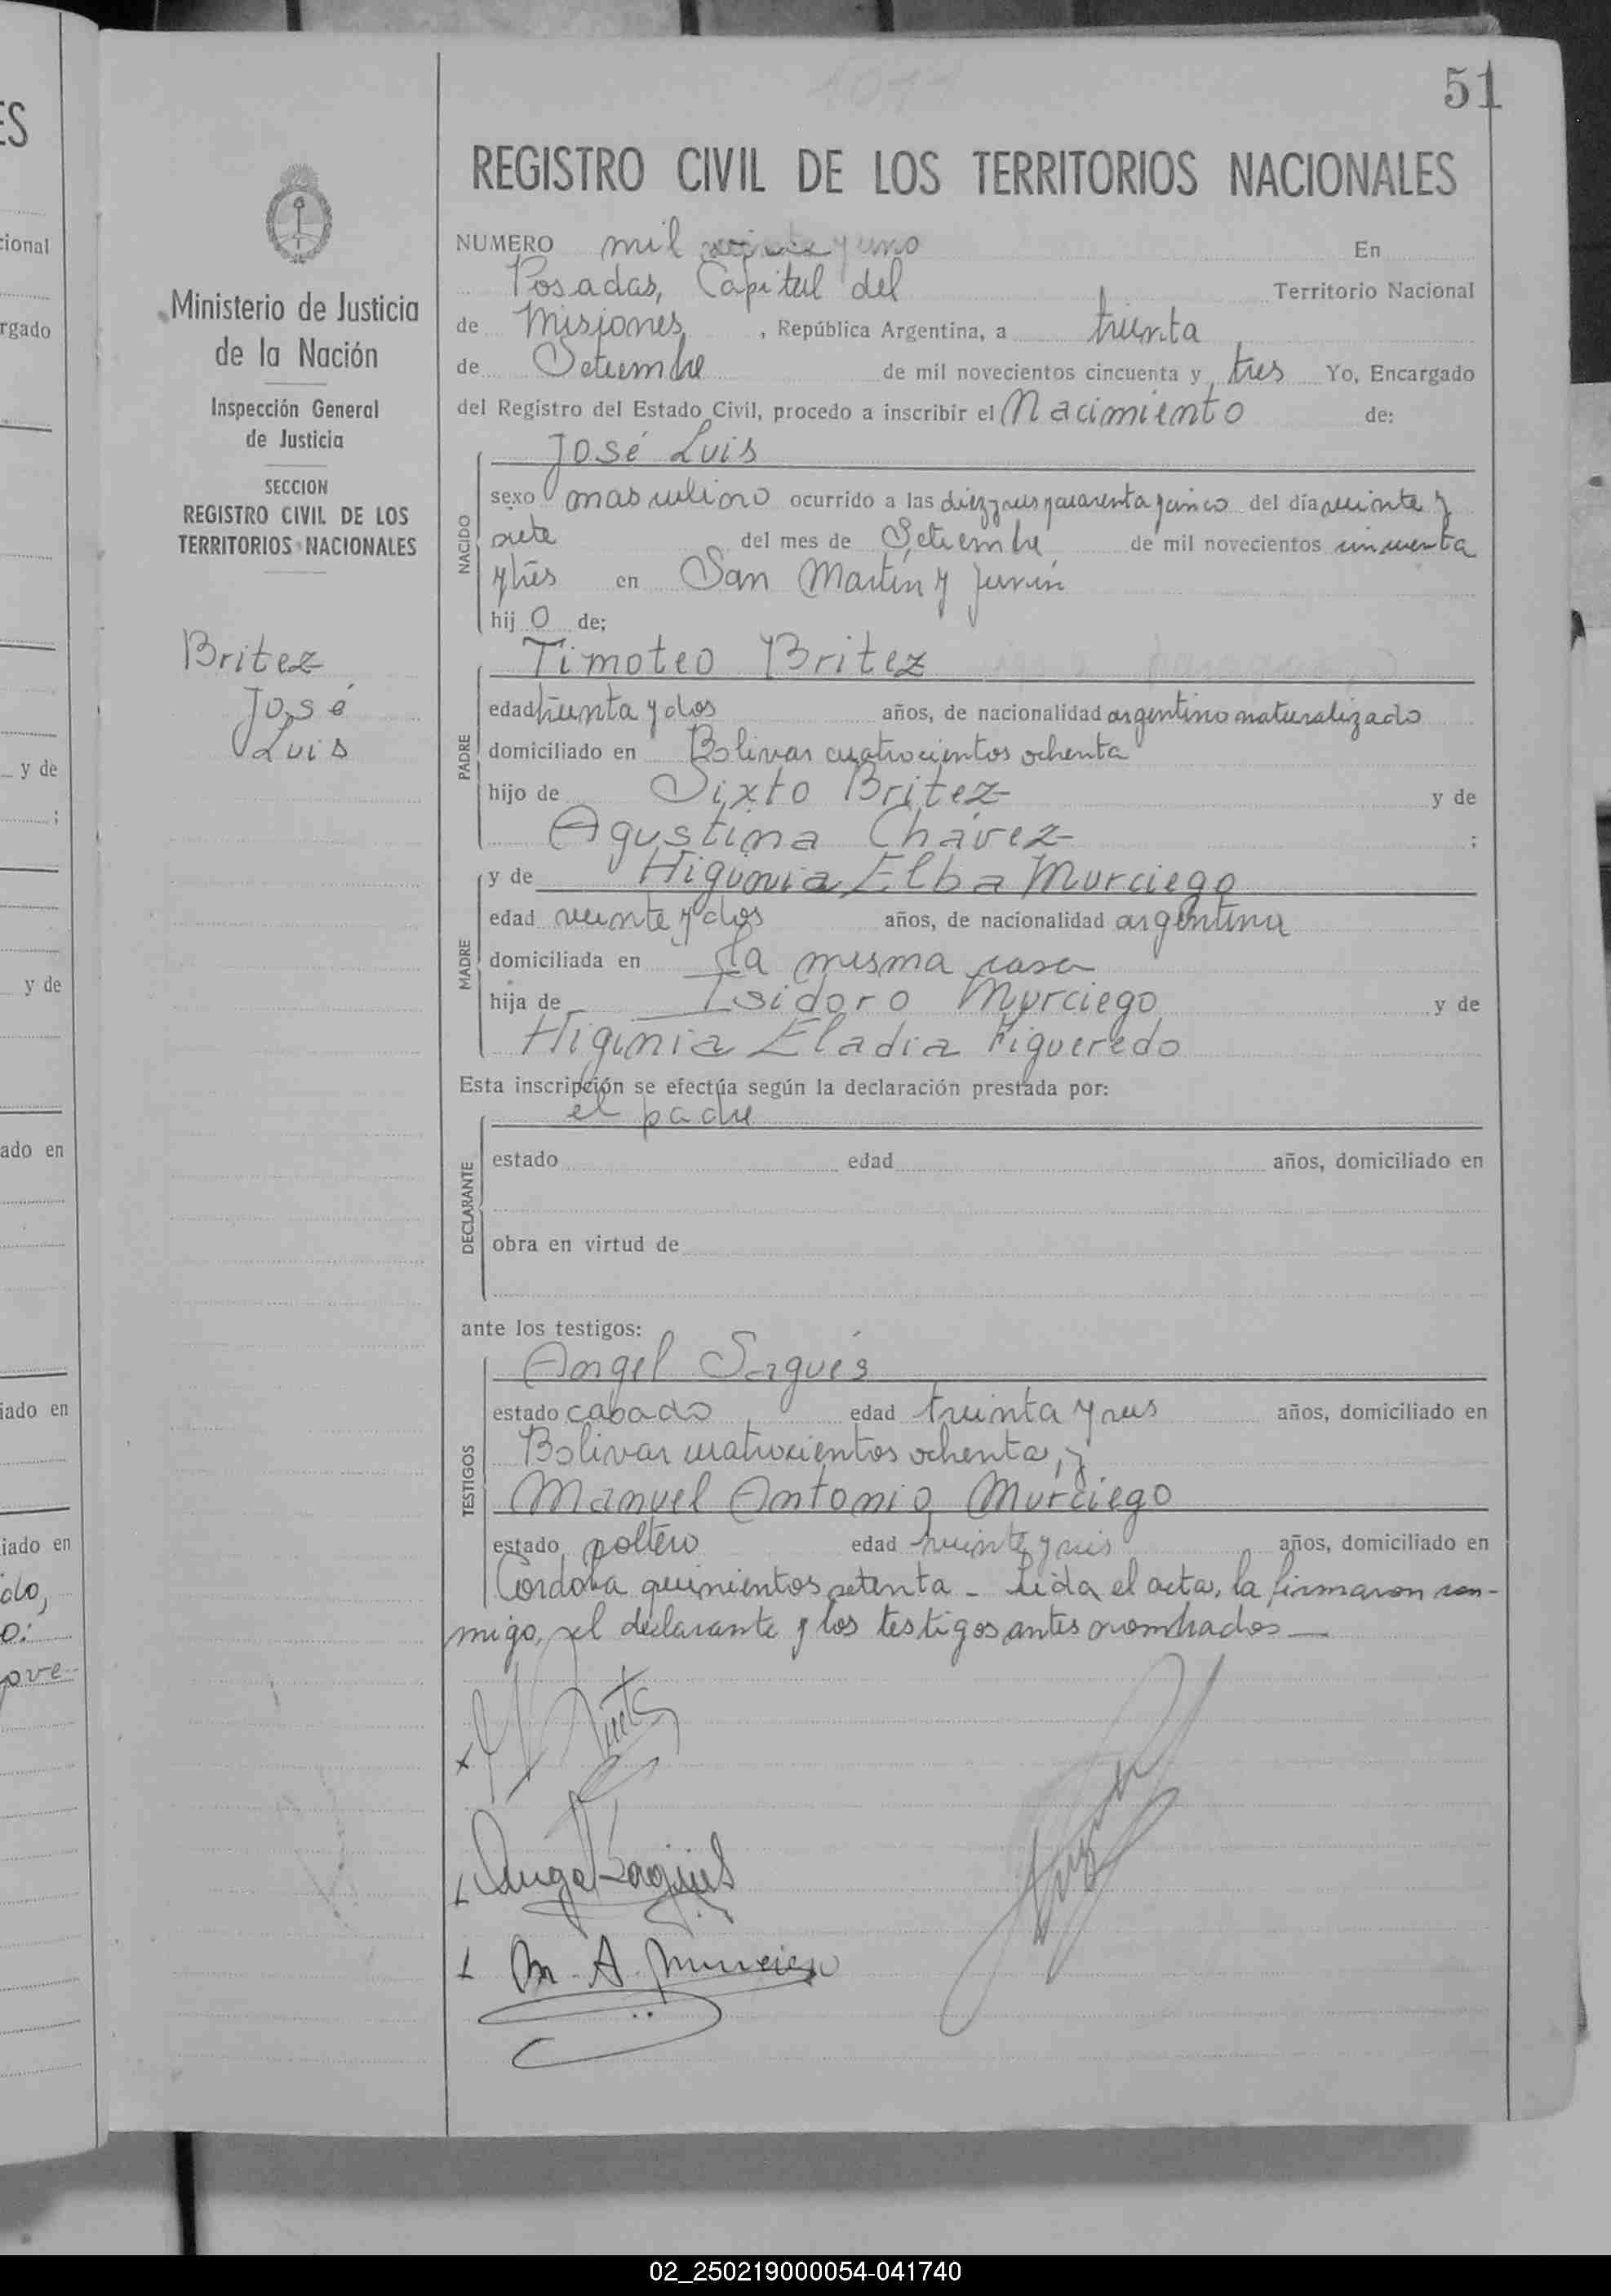 51
REGISTRO CIVIL DE LOS TERRITORIOS NACIONALES
Ministerio de Justicia
de la Nación
Inspección General
de Justicia
SECCION
REGISTRO CIVIL DE LOS
TERRITORIOS NACIONALES
Britez
José
Luis
NUMERO mil veinte y uno En
Posadas, Capital del Territorio Nacional
de Misiones, República Argentina, a treinta
de Setiembre de mil novecientos cincuenta y tres Yo, Encargado
del Registro del Estado Civil, procedo a inscribir el Nacimiento de:
NACIDO
José Luis
sexo masculino ocurrido a las diez y seis y cuarenta y cinco del día veinte y
siete del mes de Setiembre de mil novecientos cincuenta
y tres en San Martín y Junín
hijo de:
PADRE
Timoteo Britez
edad treinta y dos años, de nacionalidad argentino naturalizado
domiciliado en Bolivar cuatrocientos ochenta
hijo de Sixto Britez y de
Agustina Chávez ;
MADRE
y de Higinia Elba Murciego
edad veinte y dos años, de nacionalidad argentina
domiciliada en la misma casa
hija de Isidoro Murciego y de
Higinia Eladia Figueredo
Esta inscripción se efectúa según la declaración prestada por:
DECLARANTE
el padre
estado edad años, domiciliado en
obra en virtud de
ante los testigos:
TESTIGOS
Angel Sagués
estado casado edad treinta y seis años, domiciliado en
Bolivar cuatrocientos ochenta, y
Manuel Antonio Murciego
estado soltero edad veinte y seis años, domiciliado en
Córdoba quinientos setenta - Leida el acta, la firmaron con-
migo, el declarante y los testigos antes nombrados—
Angel Sagués
M. A. Murciego
02_250219000054-041740